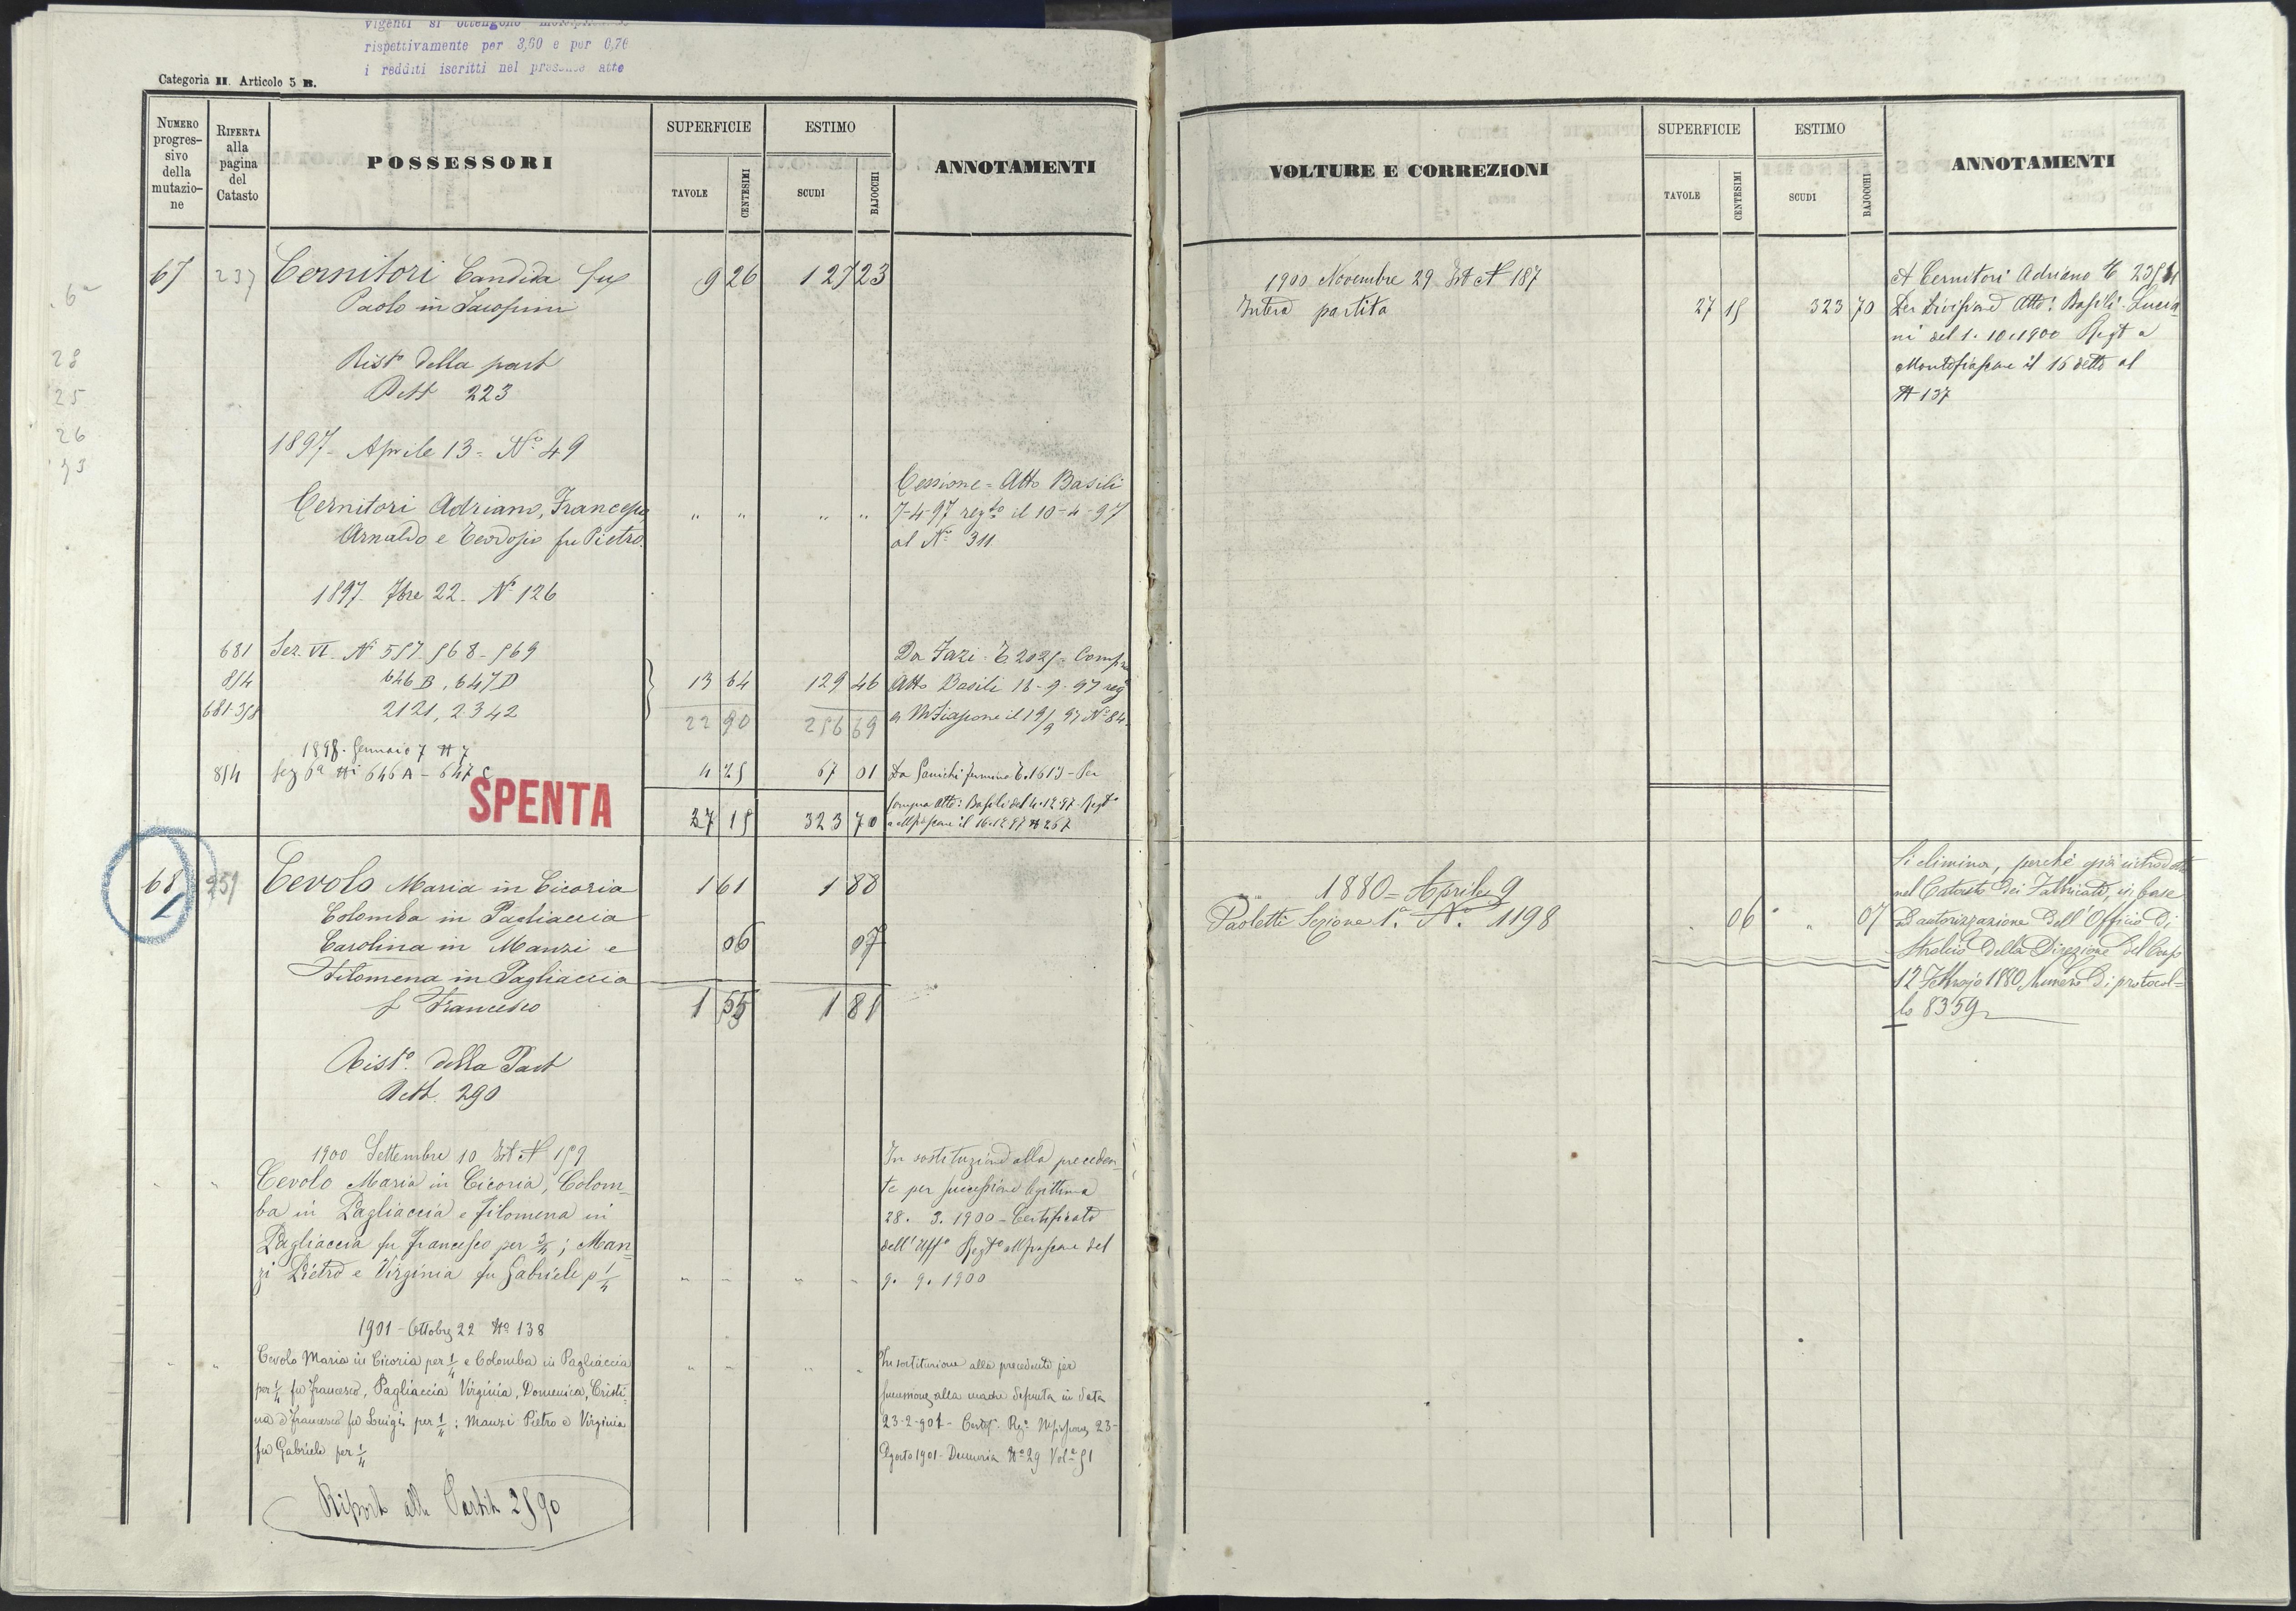 vigenti si ottengono
rispettivamente per 3,60 e per 0,76
i redditi iscritti nel presente atto
Categoria II. Articolo 5 B.
NUMERO progres-sivo della mutazio-ne
RIFERTA alla pagina del Catasto
POSSESSORI
SUPERFICIE
TAVOLE
CENTESIMI
ESTIMO
SCUDI
BAJOCCHI
ANNOTAMENTI
67 237 Cernitori Candida fu 9 26 127 23
Paolo in Jacopini
Rist° della part
Rett 223
28
25
26
1897 - Aprile 13 = N° 49
Cernitori Adriano, Francesco " " " "
Arnaldo e Teodosio fu Pietro.
Cessione = Atto Basili
7-4-97 regto il 10-4-97
al N° 311
1897 - 7bre 22 - N° 126
681 Sez. VI N 557 - 568 - 569
814 646 B, 647 D 13 64 129 46
2121, 2342 22 90 256 69
Da Fazi - 2025 - Compra
Atto Basili 16-9-97 reg
a MFiascone il 19/9 97 N° 84
1898 - Gennaio 7 N 7
814 Sez 6a Ni 646 A - 647 C 4 25 67 01
1613 - Per
compra Atto: Basili del 4.12.97 - Regto
il 16.12.97 N 267
27 15 323 70
SPENTA
68 1 259 Cevolo Maria in Cicoria 1 61 1 88
Colomba in Pagliaccia
Carolina in Manzi e 06 07
Filomena in Pagliaccia
f Francesco 1 55 1 81
Rist° della Part
Rett. 290
1900 Settembre 10 N 159
" " Cevolo Maria in Cicoria, Colom-
ba in Pagliaccia e Filomena in
Pagliaccia fu Francesco per 3/4; Man-
zi Pietro e Virginia fu Gabriele p 1/4 " " " "
In sostituzione alla preceden-
te per successione legittima
28. 3. 1900 - Certificato
dell'Uff° Regto del
9. 9. 1900
1901 - Ottobre 22 N° 138
" " Cevolo Maria in Cicoria per 1/4 e Colomba in Pagliaccia " " " "
per 1/4 fu Francesco, Pagliaccia Virginia, Domenica, Cristi-
na d Francesco fu Luigi per 1/4; Manzi Pietro e Virginia
fu Gabriele per 1/4
In sostituzione alla precedente per
successione alla madre defunta in data
23-2-901 - Certif. Reg. 23-
Agosto 1901 - Denuncia N° 29 Vol° 51
Riporto alla Partita 2590
VOLTURE E CORREZIONI
SUPERFICIE
TAVOLE
CENTESIMI
ESTIMO
SCUDI
BAJOCCHI
ANNOTAMENTI
1900 Novembre 29 N 187
Intera partita 27 15 323 70
A Cernitori Adriano
Per divisione Atto: Basili - Lucia-
ni del 1. 10. 1900 Regt a
Montefiascone il 16 detto al
N 137
1880 = Aprile 9
Paoletti Sezione 1a. N°. 1198 " 06 " 07
Si elimina, perchè già introdotto
nel Catasto dei Fabbricati, in base
d'autorizzazione dell'Officio di
Stralcio della Direzione del Censo
12 Febbrajo 1880 Numero di protocol-
lo 8359